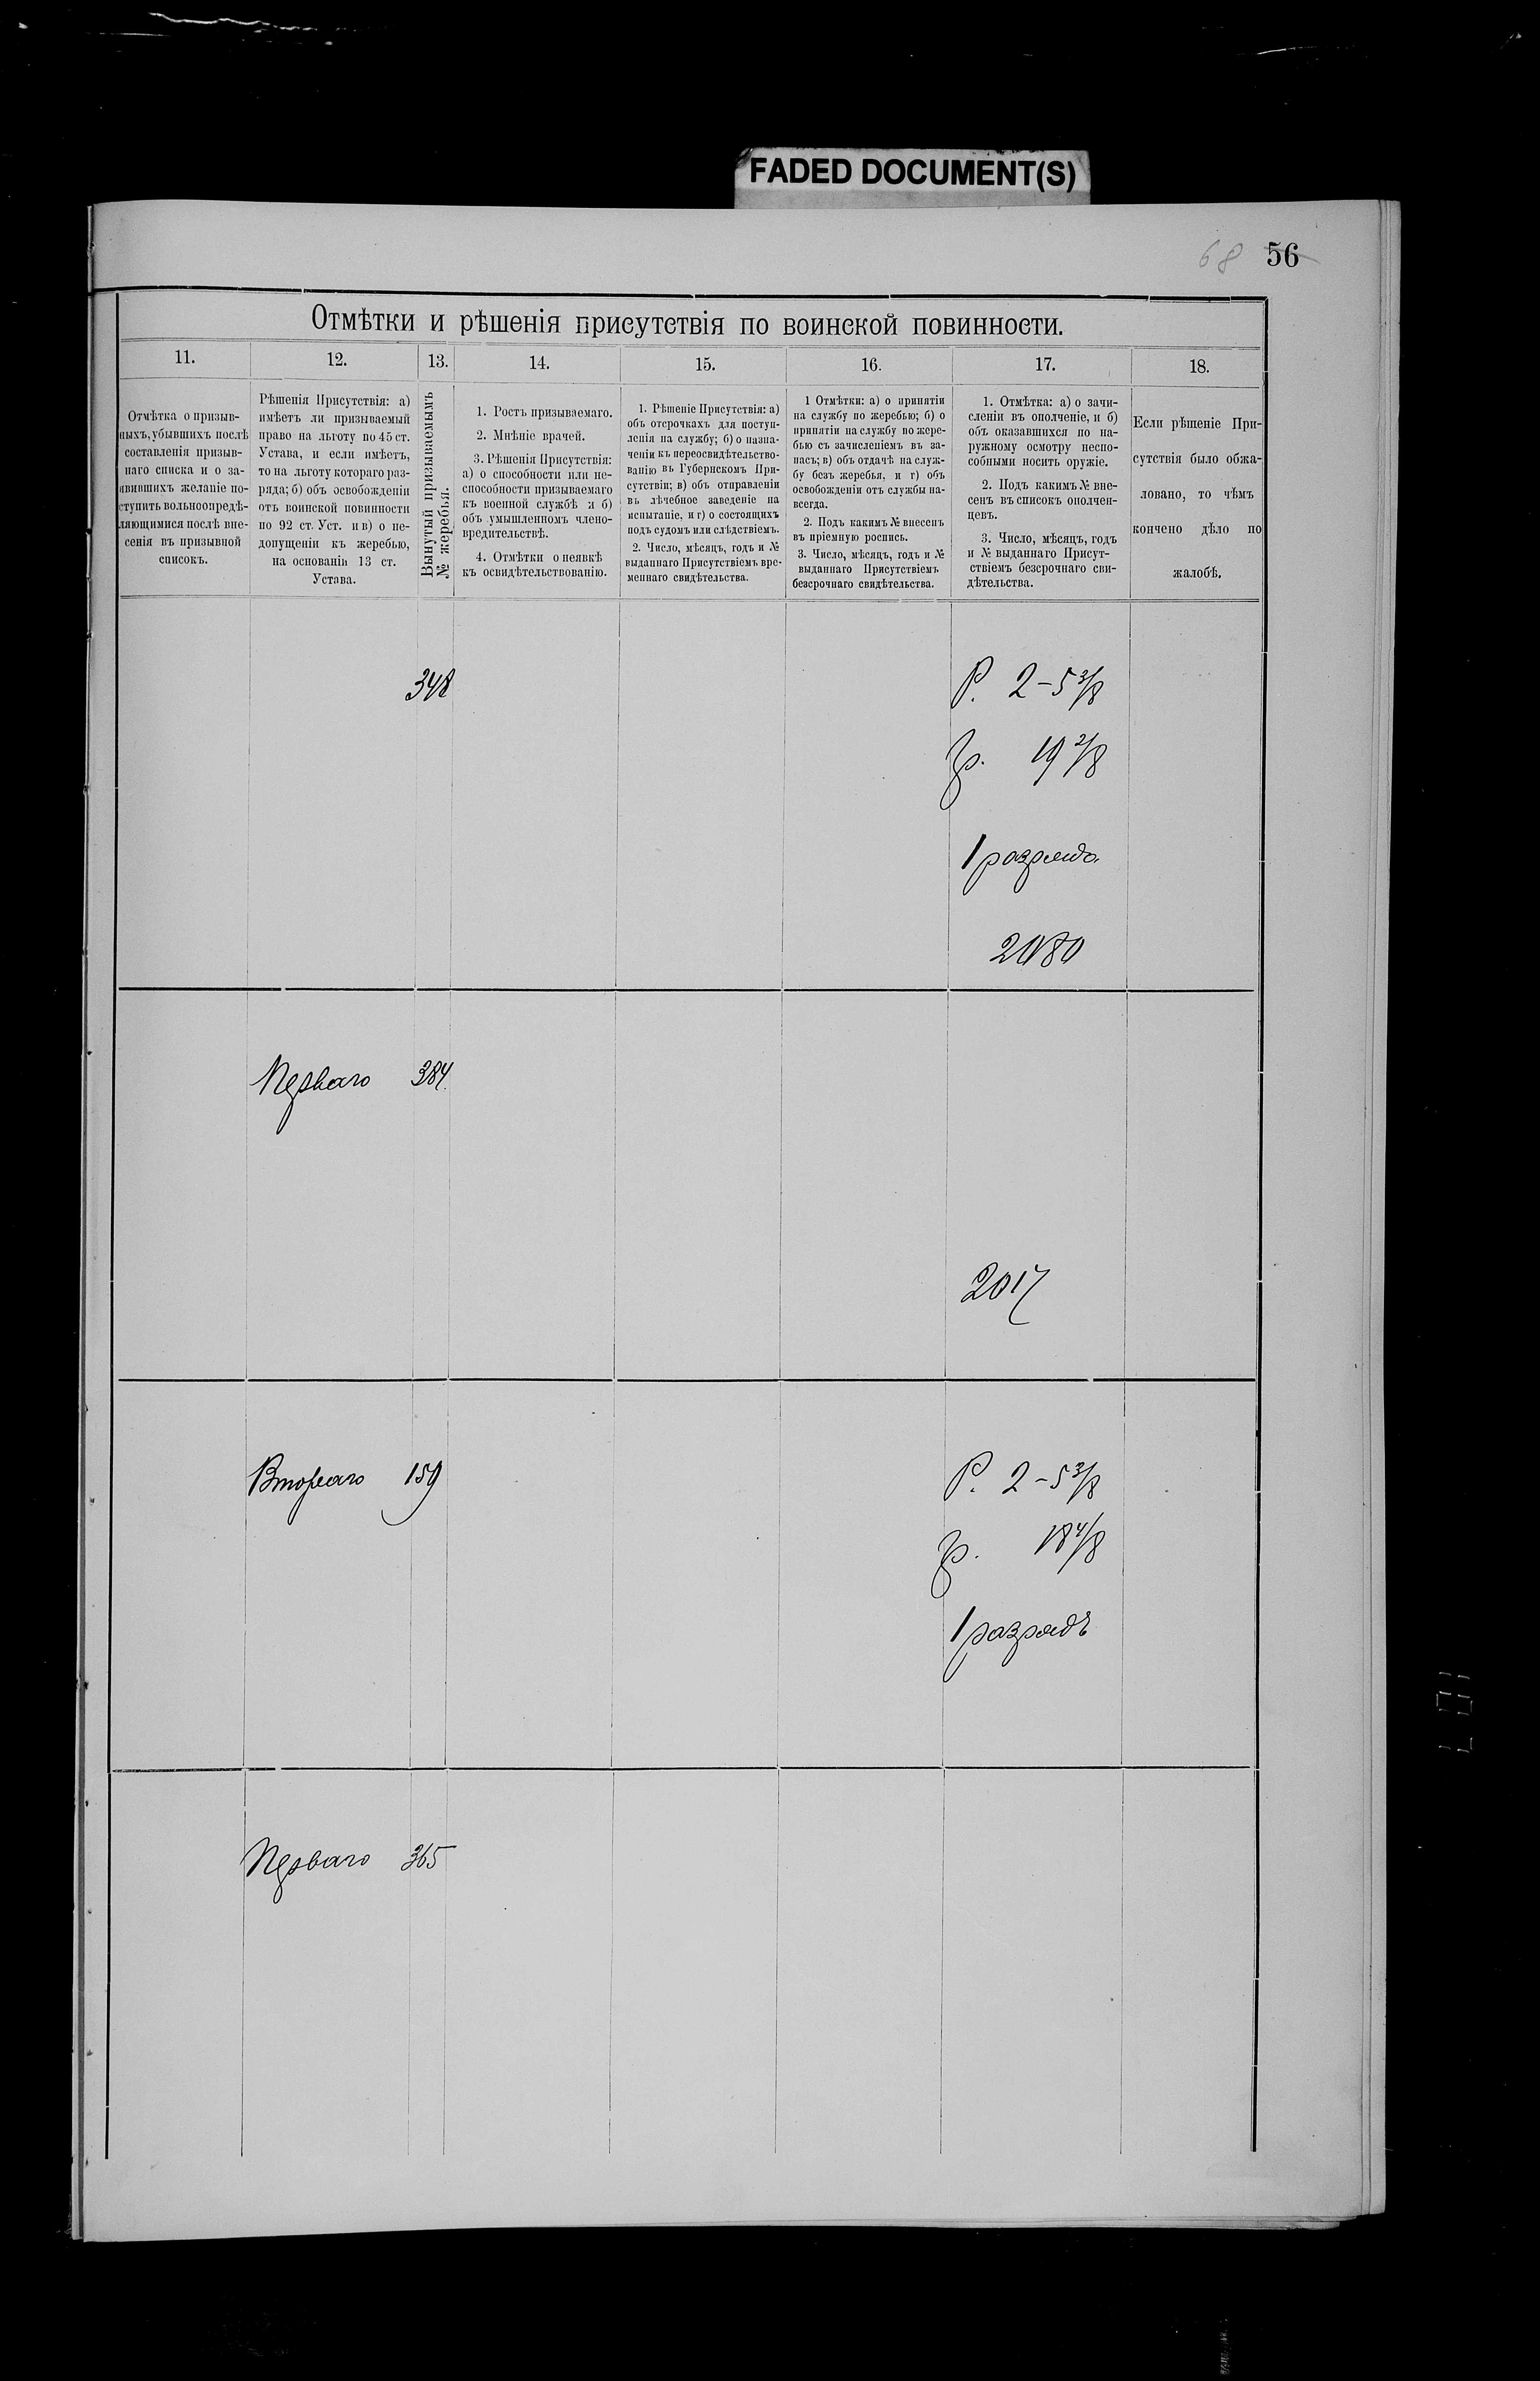 FADED DOCUMENT(S)
68 56
Отмѣтки и рѣшенія присутствія по воинской повинности.
11. 12. 13. 14. 15. 16. 17. 18.
Отмѣтка о призыв-
ныхъ, убывшихъ послѣ
составленія призыв-
наго списка и о за-
явившихъ желаніе по-
ступить вольноопредѣ-
ляющимися послѣ вне-
сенія въ призывной
списокъ.
Рѣшенія Присутствія: а)
имѣетъ ли призываемый
право на льготу по 45 ст.
Устава, и если имѣетъ,
то на льготу котораго раз-
ряда; б) объ освобожденіи
отъ воинской повинности
по 92 ст. Уст. и в) о не-
допущеніи къ жеребью,
на основаніи 13 ст.
Устава.
Вынутый призываемымъ
№ жеребья.
1. Ростъ призываемаго.
2. Мнѣніе врачей.
3. Рѣшенія Присутствія:
а) о способности или не-
способности призываемаго
къ военной службѣ и б)
объ умышленномъ члено-
вредительствѣ.
4. Отмѣтки о неявкѣ
къ освидѣтельствованію.
1. Рѣшеніе Присутствія: а)
объ отсрочкахъ для поступ-
ленія на службу; б) о назна-
ченіи къ переосвидѣтельство-
ванію въ Губернскомъ При-
сутствіи; в) объ отправленіи
въ лѣчебное заведеніе на
испытаніе, и г) о состоящихъ
подъ судомъ или слѣдствіемъ.
2. Число, мѣсяцъ, годъ и №
выданнаго Присутствіемъ вре-
меннаго свидѣтельства.
1 Отмѣтки: а) о принятіи
на службу по жеребью; б) о
принятіи на службу по жере-
бью съ зачисленіемъ въ за-
пасъ; в) объ отдачѣ на служ-
бу безъ жеребья, и г) объ
освобожденіи отъ службы на-
всегда.
2. Подъ какимъ № внесенъ
въ пріемную роспись.
3. Число, мѣсяцъ, годъ и №
выданнаго Присутствіемъ
безсрочнаго свидѣтельства.
1. Отмѣтка: а) о зачи-
сленіи въ ополченіе, и б)
объ оказавшихся по на-
ружному осмотру неспо-
собными носить оружіе.
2. Подъ какимъ № вне-
сенъ въ списокъ ополчен-
цевъ.
3. Число, мѣсяцъ, годъ
и № выданнаго Присут-
ствіемъ безсрочнаго сви-
дѣтельства.
Если рѣшеніе При-
сутствія было обжа-
ловано, то чѣмъ
кончено дѣло по
жалобѣ.
348 Р. 2-5 3/8
гр. 19 2/8
1 разряда
2080
Перваго 384.
2017
Втораго 159 Р. 2-5 3/8
гр. 18 4/8
1 разрядъ
Перваго 365